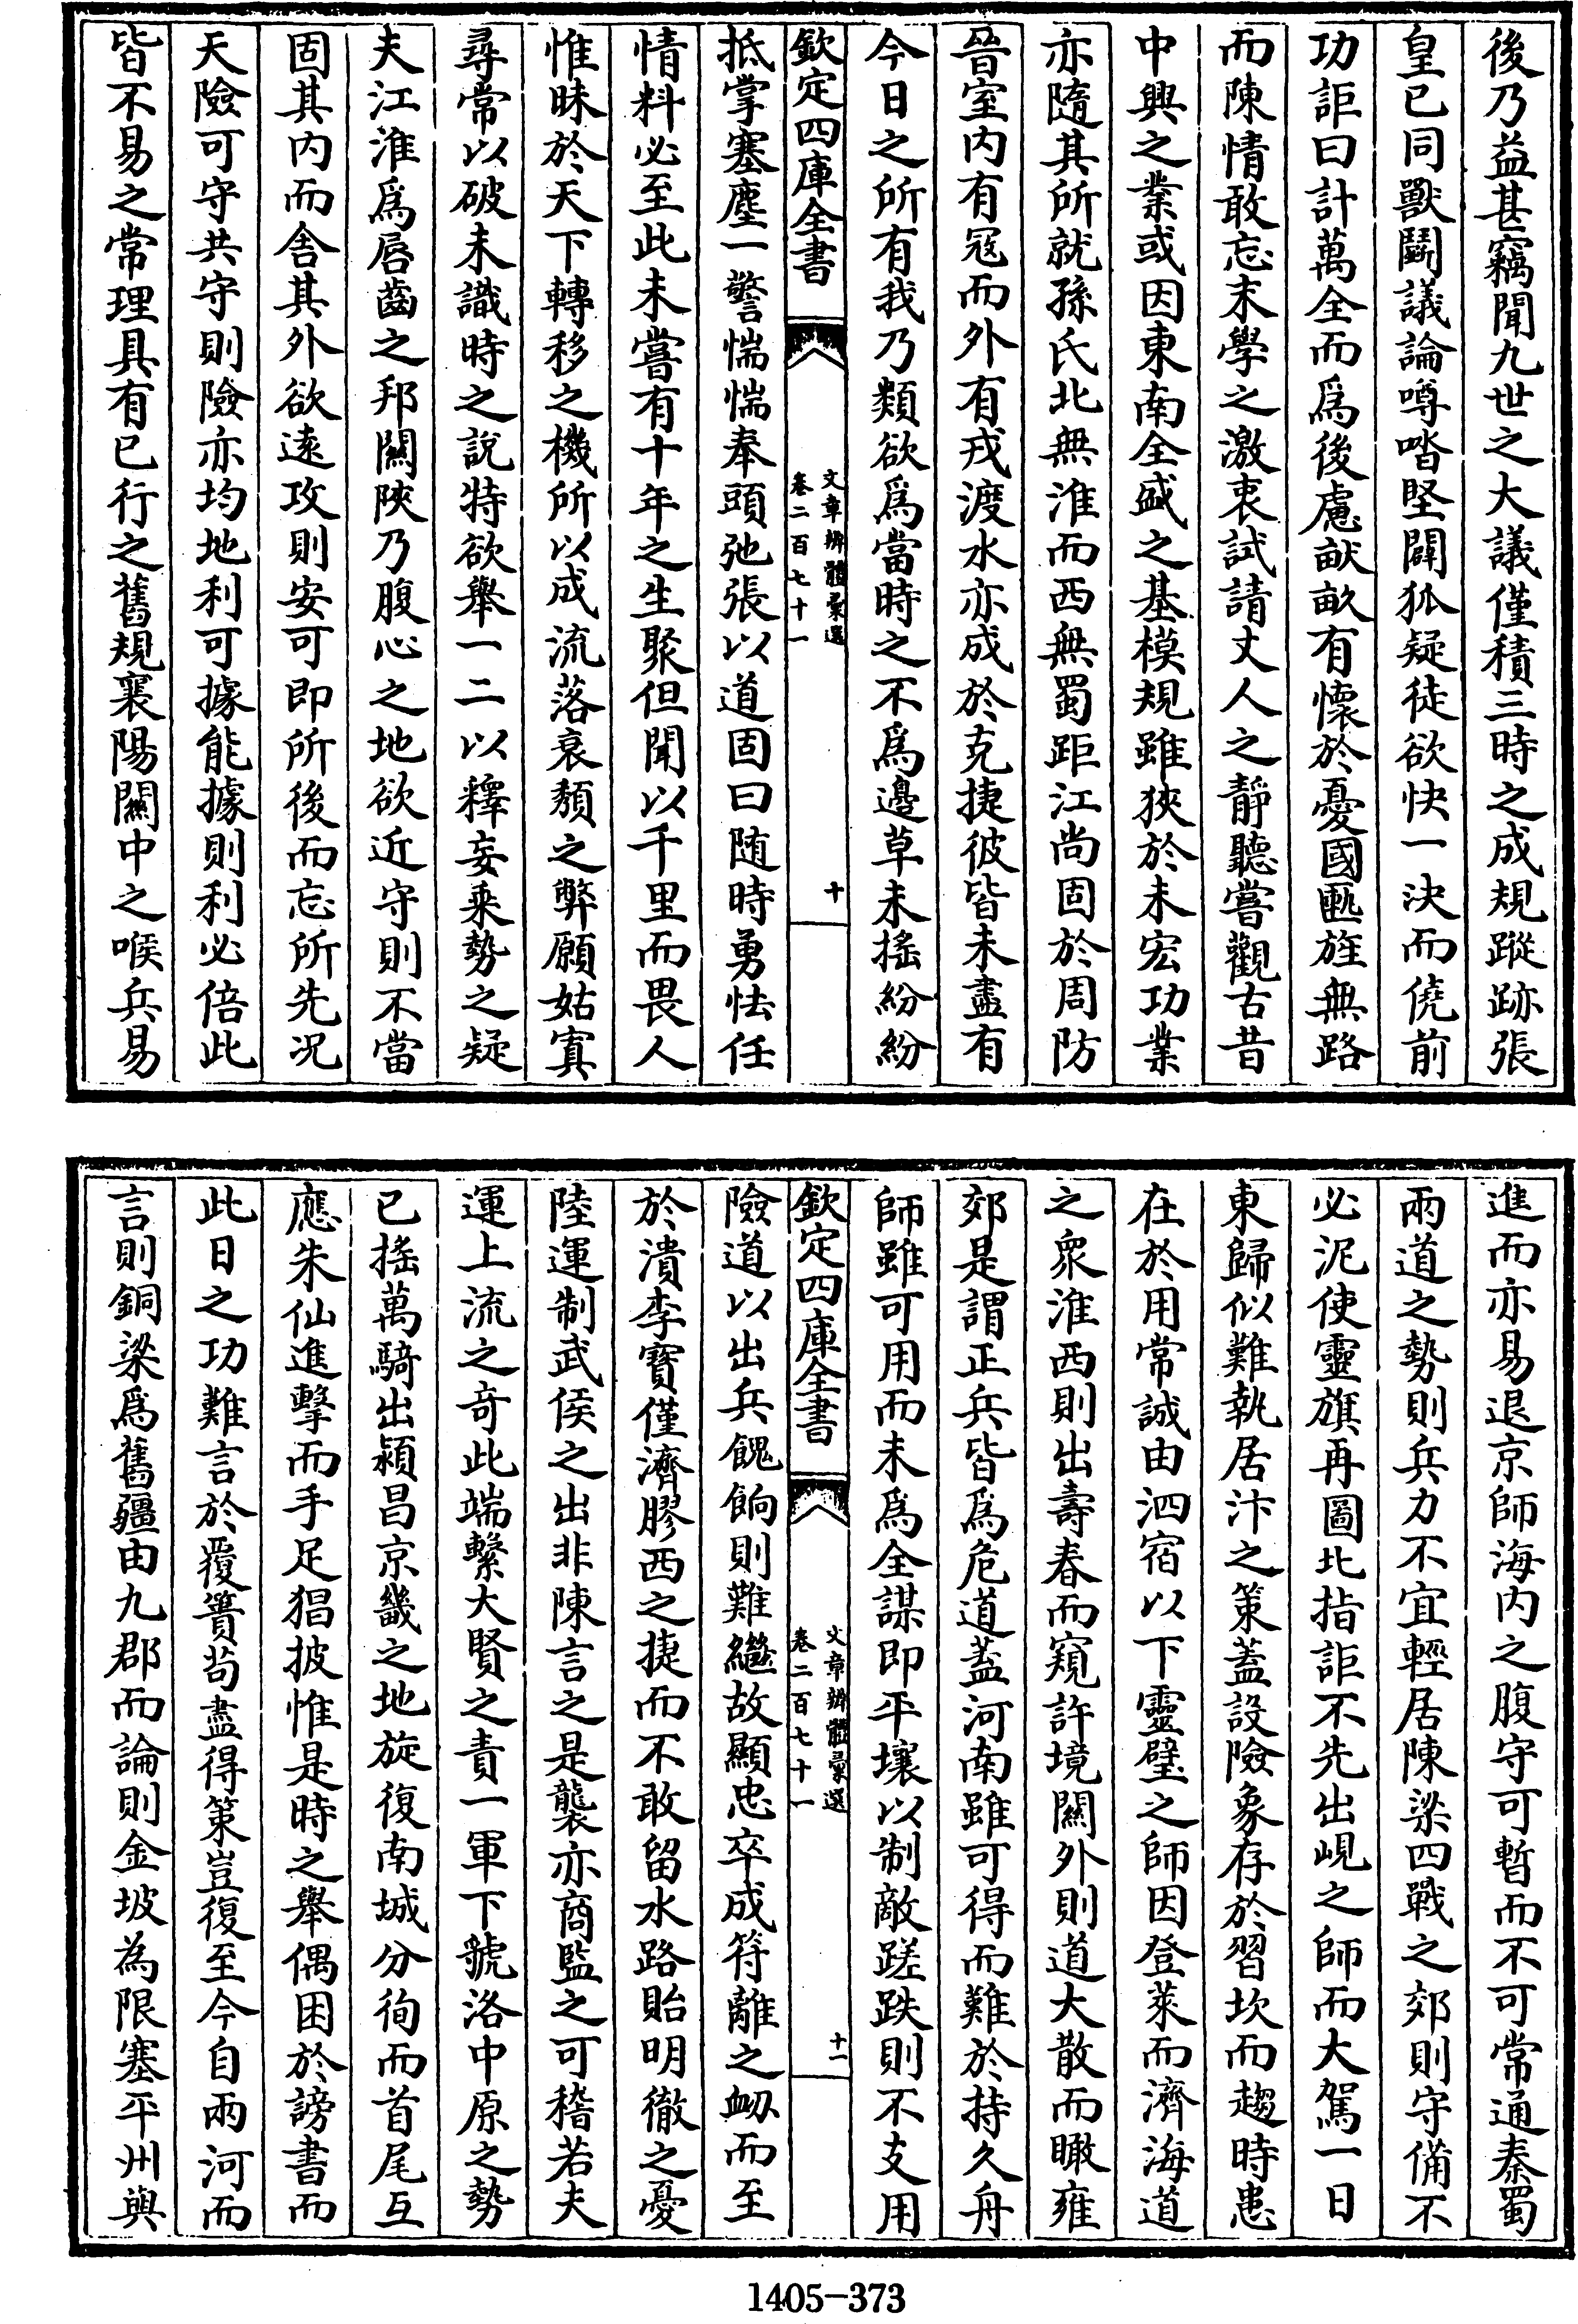 後乃益甚竊聞九世之大議僅積三時之成規蹤跡張
皇已同獸鬭議論噂喈堅闢狐疑徒欲快一決而僥前
功詎曰計萬全而爲後慮畎畝有懷於憂國匭旌無路
而陳情敢忘末學之激衷試請丈人之靜聽嘗觀古昔
中興之業或因東南全盛之基模規雖狹於未宏功業
亦隨其所就孫氏北無淮而西無蜀距江尚固於周防
晉室內有冦而外有戎渡水亦成於克捷彼皆未盡有
今日之所有我乃類欲爲當時之不爲邊草未搖紛紛
欽定四庫全書
文章辨體彙選
卷二百七十一
十
抵掌塞塵一警惴惴奉頭弛張以道固曰随時勇怯任
情料必至此未嘗有十年之生聚但聞以千里而畏人
惟昧於天下轉移之機所以成流落衰頽之弊願姑寘
尋常以破未識時之說特欲舉一二以釋妄乘勢之疑
夫江淮爲唇齒之邦關陜乃腹心之地欲近守則不當
固其內而舍其外欲遠攻則安可即所後而忘所先况
天險可守共守則險亦均地利可據能據則利必倍此
皆不易之常理具有已行之舊規襄陽關中之喉兵易
進而亦易退京師海內之腹守可暫而不可常通秦蜀
兩道之勢則兵力不宜輕居陳梁四戰之郊則守備不
必泥使靈旗再圖北指詎不先出峴之師而大駕一日
東歸似難執居汴之策蓋設險象存於習坎而趨時患
在於用常誠由泗宿以下靈璧之師因登萊而濟海道
之衆淮西則出壽春而窺許境關外則道大散而瞰雍
郊是謂正兵皆爲危道蓋河南雖可得而難於持久舟
師雖可用而未爲全謀即平壤以制敵蹉跌則不支用
欽定四庫全書
文章辨體彙選
卷二百七十一
十一
險道以出兵餽餉則難繼故顯忠卒成符離之衂而至
於潰李寶僅濟膠西之捷而不敢留水路貽明徹之憂
陸運制武侯之出非陳言之是襲亦商監之可稽若夫
運上流之奇此端繫大賢之責一軍下虢洛中原之勢
已搖萬騎出潁昌京畿之地旋復南城分徇而首尾互
應朱仙進擊而手足猖披惟是時之舉偶困於謗書而
此日之功難言於覆簣茍盡得策豈復至今自兩河而
言則銅梁爲舊疆由九郡而論則金坡為限塞平州與